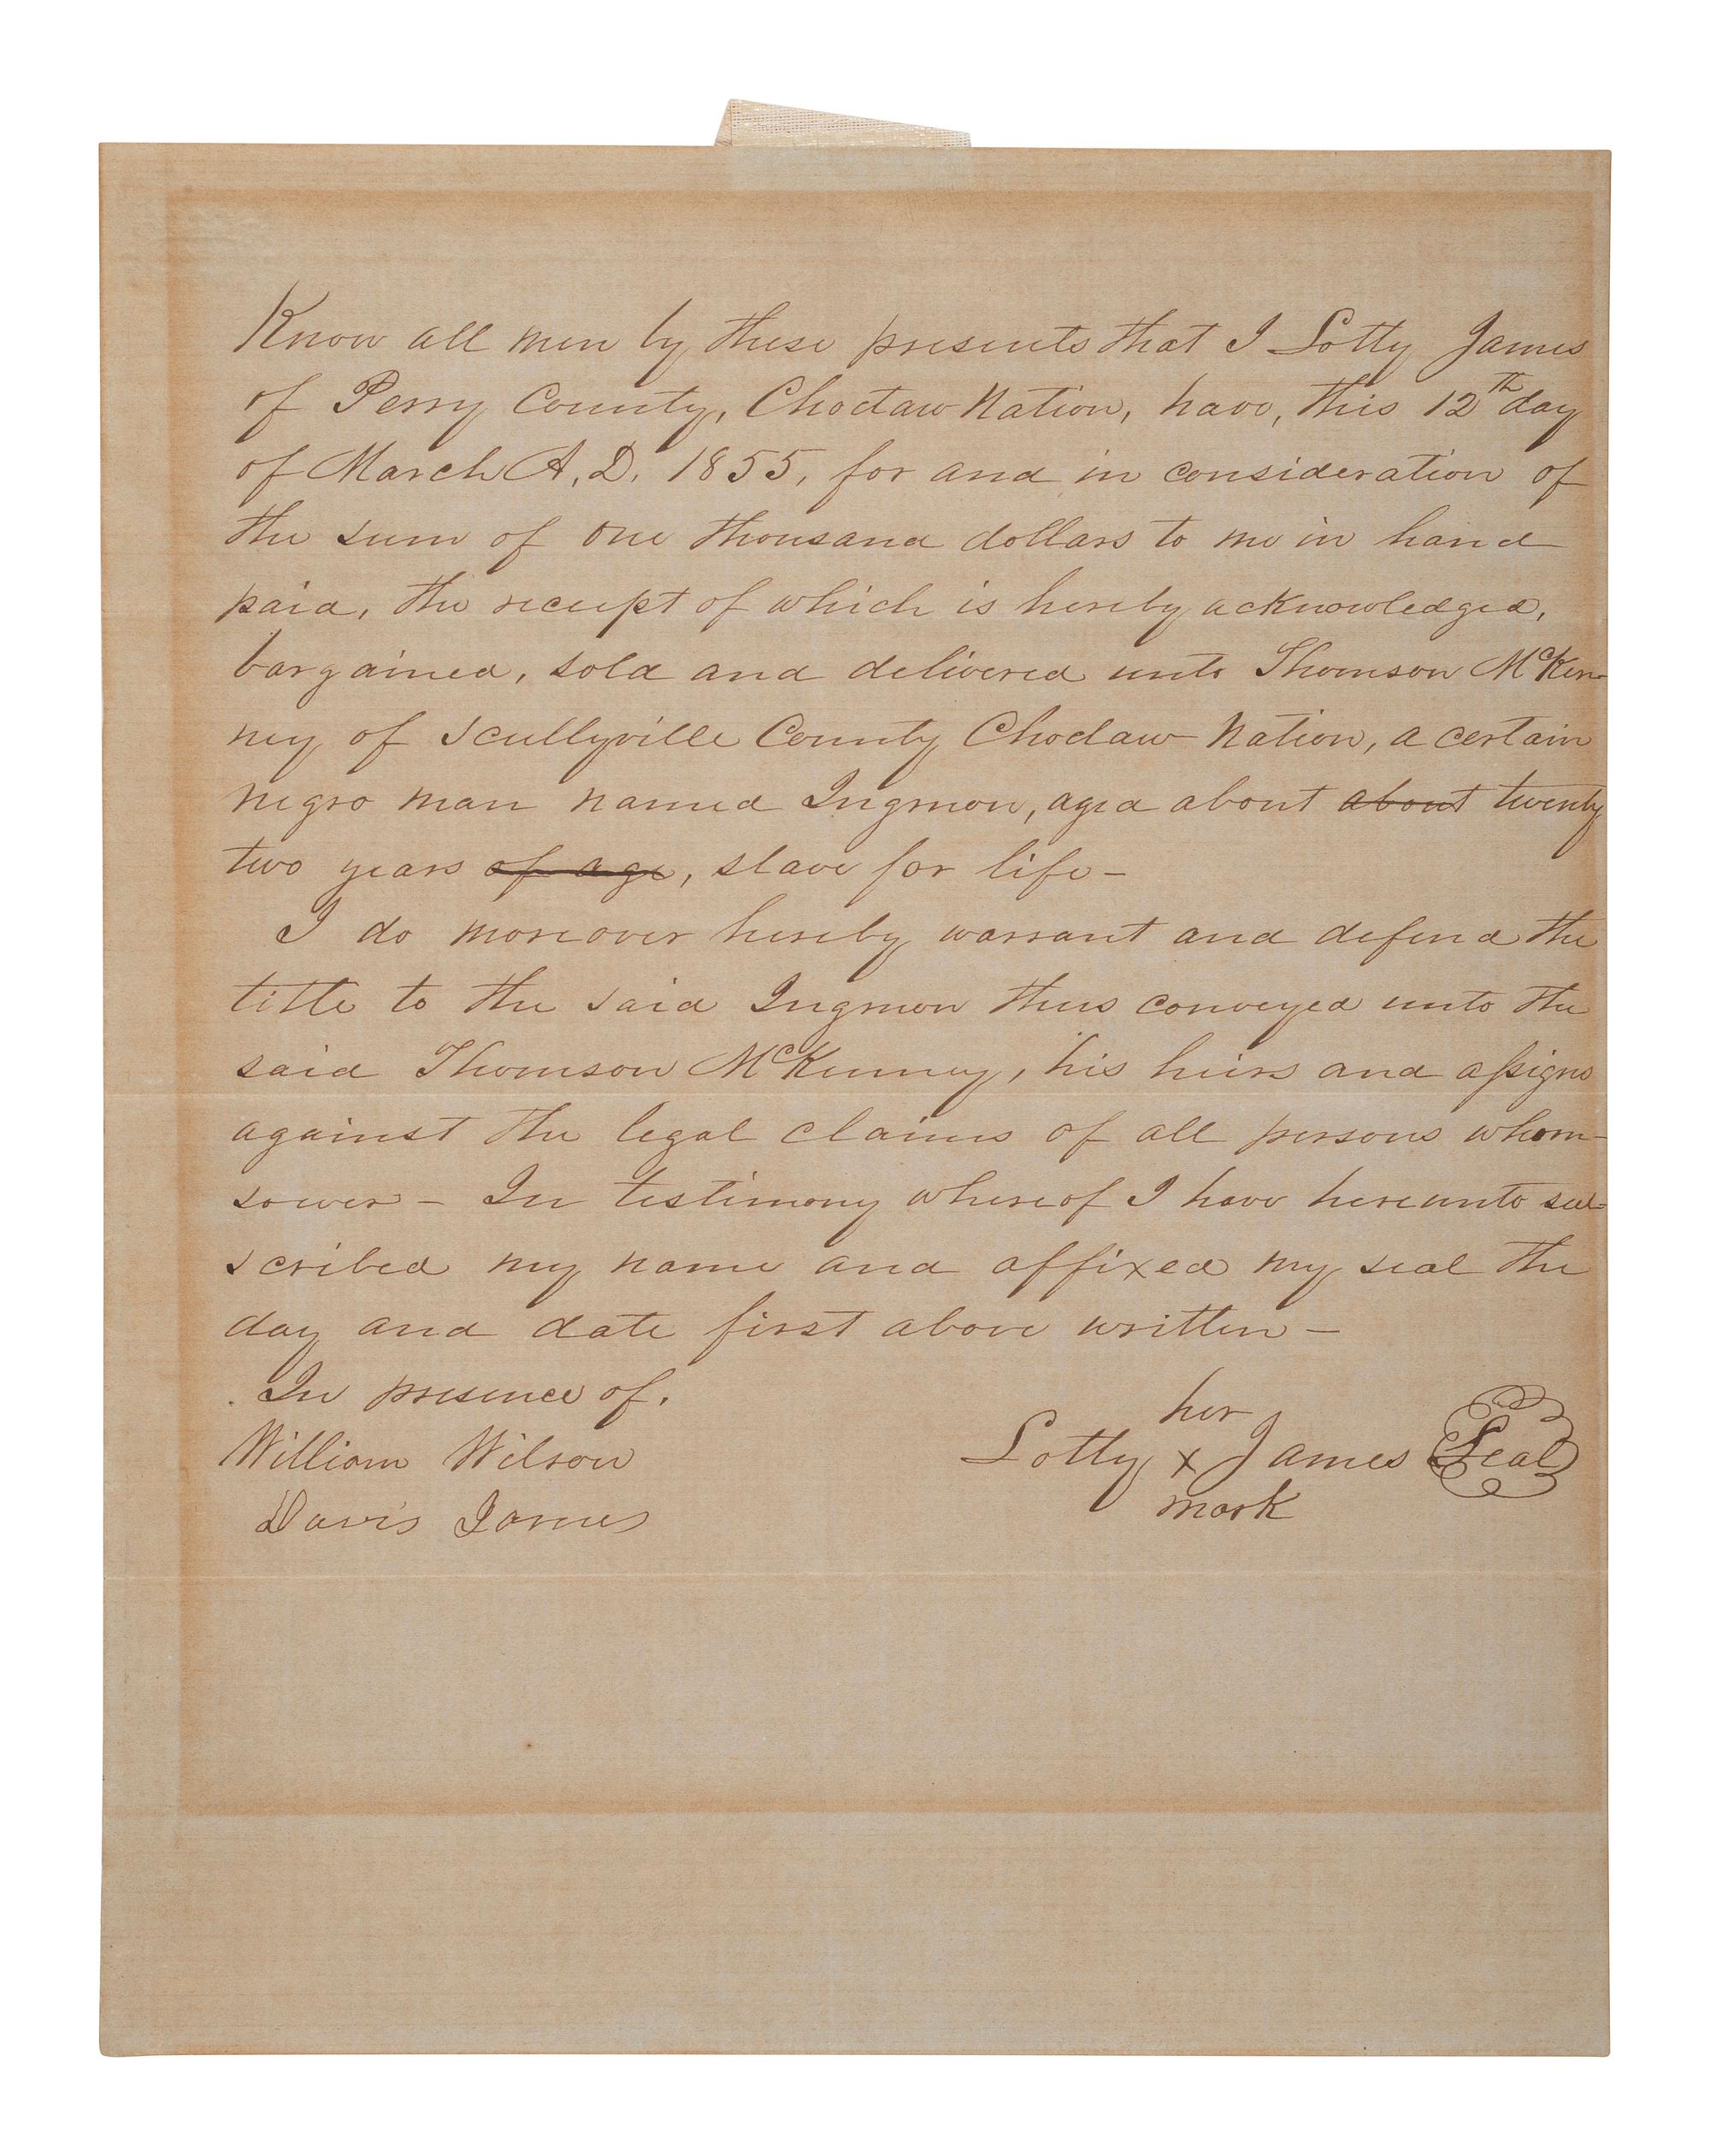 Know all men by these presents that I Lotty James
of Perry County, Choctaw Nation, have, this 12th day
of March A.D. 1855, for and in consideration of
the sum of one thousand dollars to me in hand
paid, the receipt of which is hereby acknowledged,
bargained, sold and delivered unto Thomson McKen-
ney of Scullyville County Choctaw Nation, a certain
negro man named Ingmon, aged about about twenty
two years of age, slave for life-
I do moreover hereby warrant and defend the
title to the said Ingmon thus conveyed unto the
said Thomson McKenney, his heirs and assigns
against the legal claims of all persons whom-
soever - In testimony whereof I have hereunto sub-
scribed my name and affixed my seal the
day and date first above written-
In presence of.
her
William Wilson
Lotty x James Seal
Davis James
mark